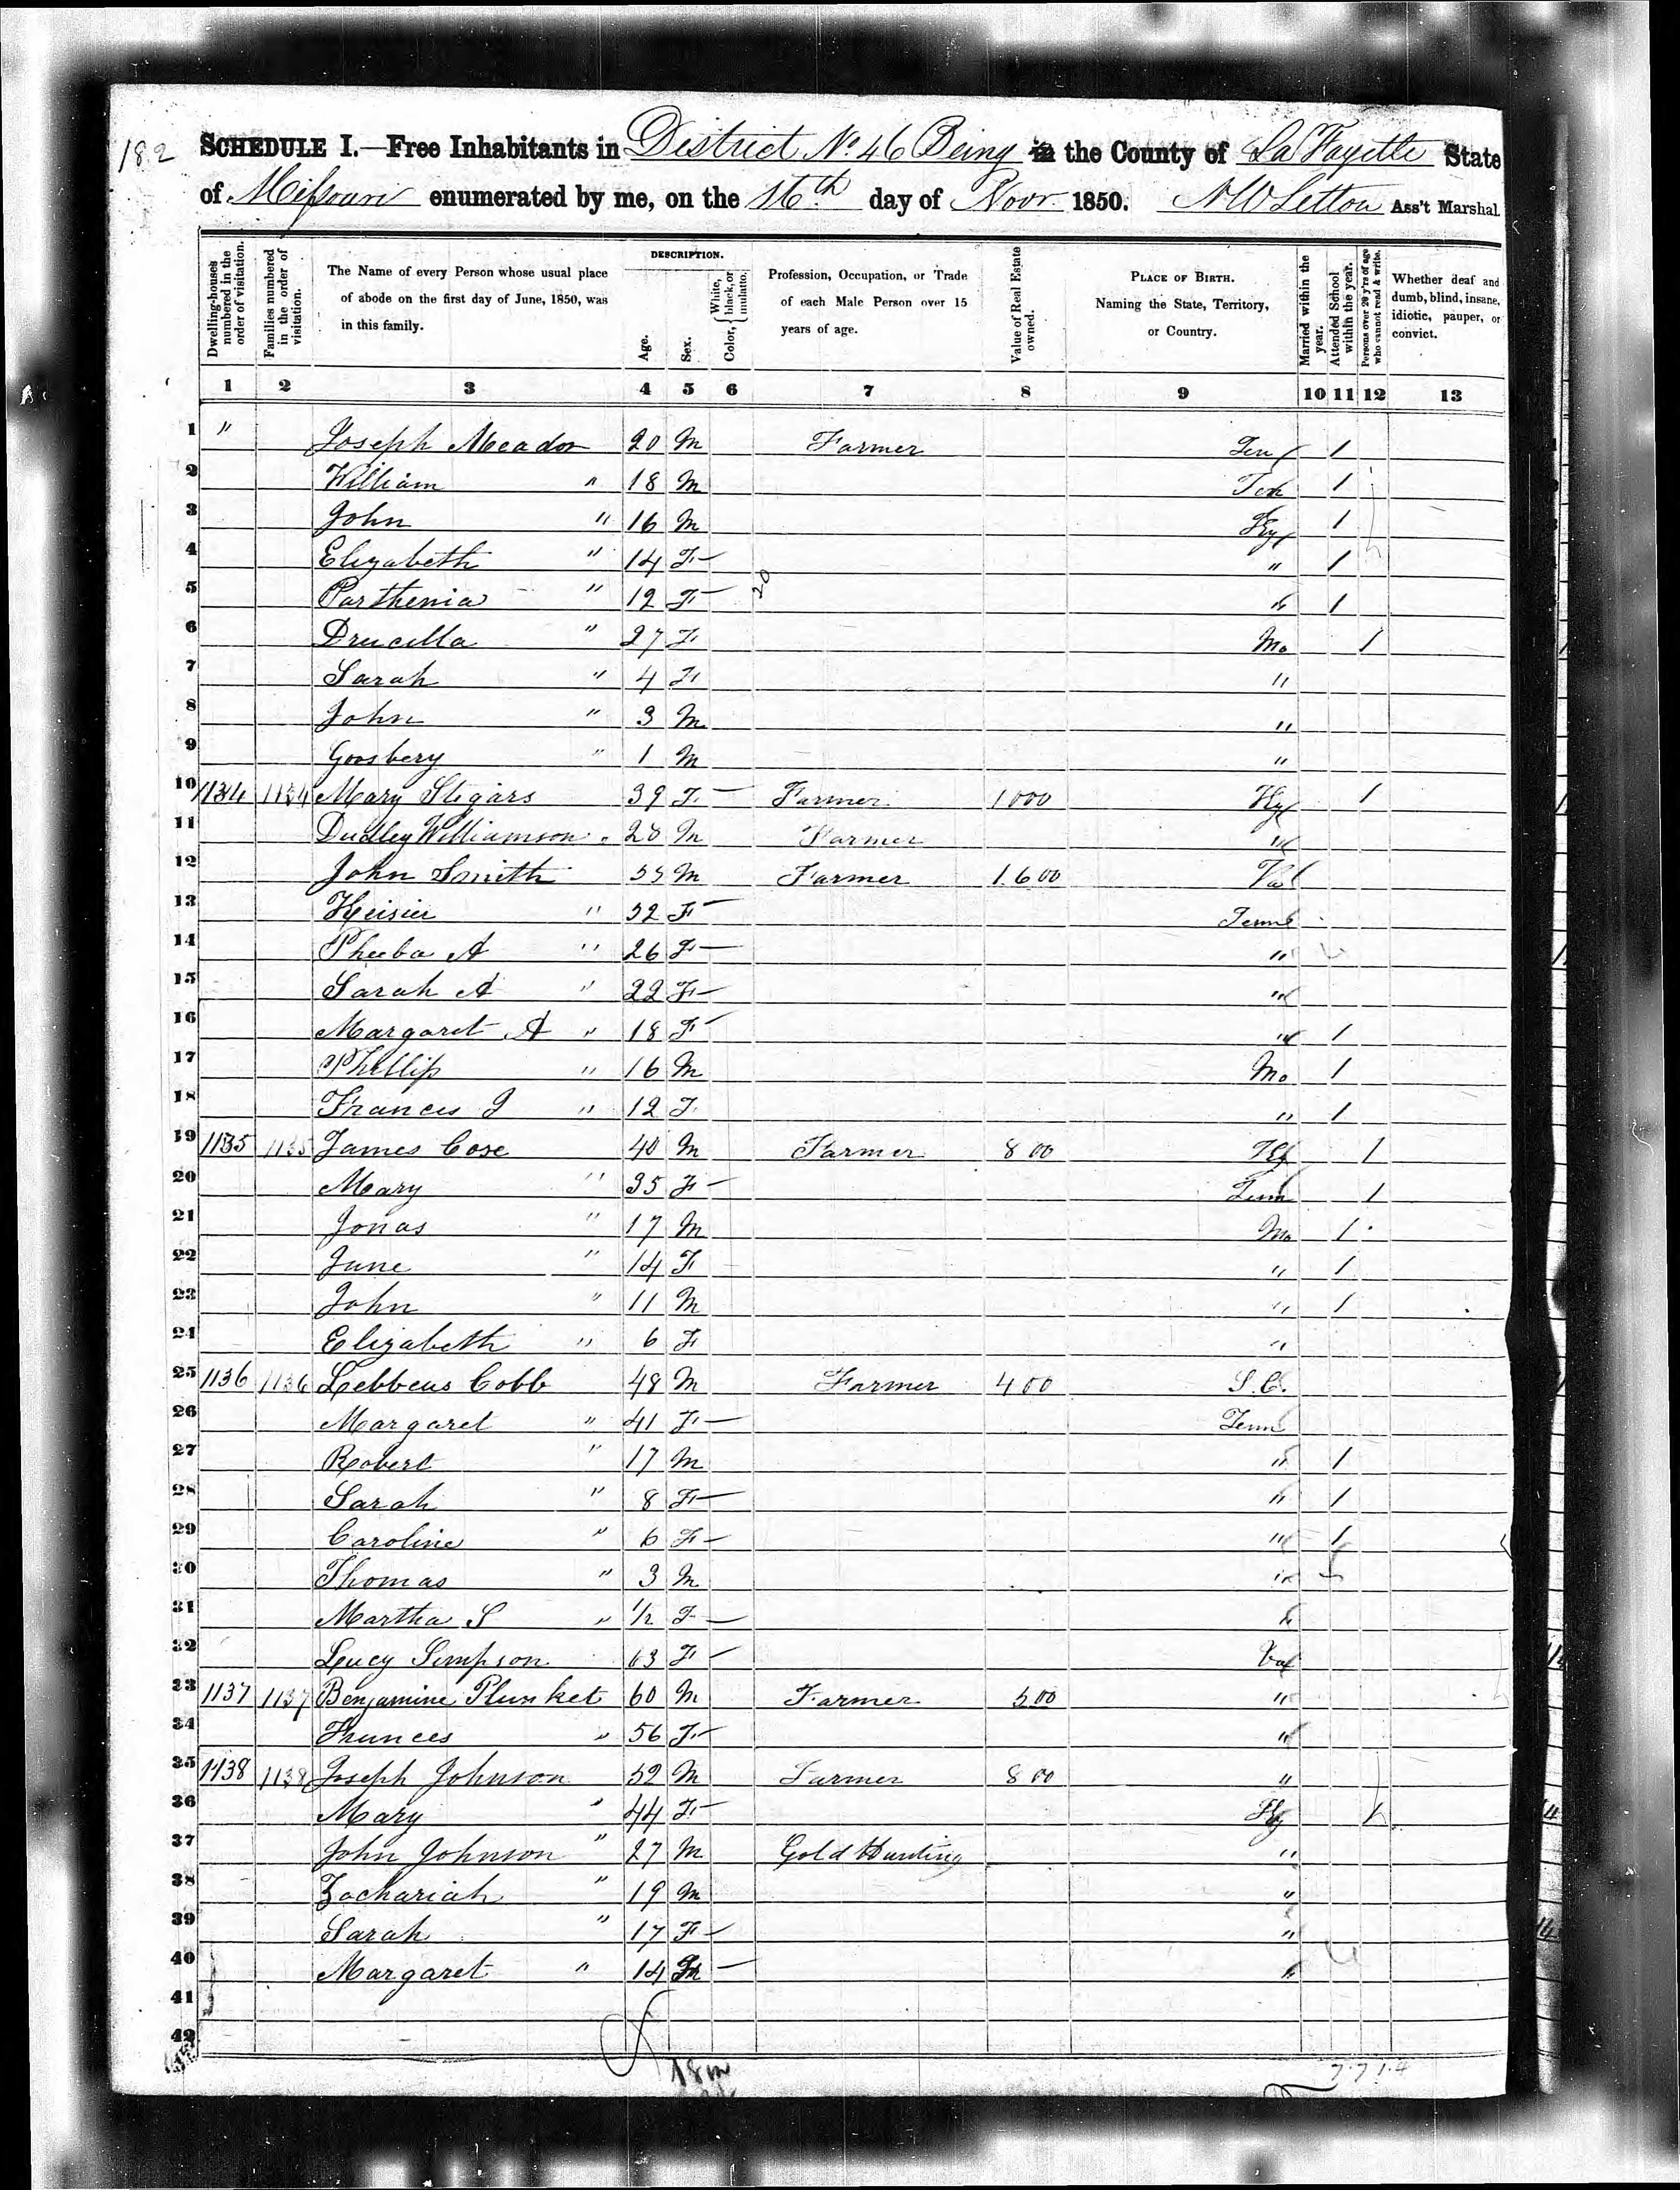 182
SCHEDULE I.—Free Inhabitants in District No. 46 Being in the County of La Fayette State
of Missouri enumerated by me, on the 16th day of Novr 1850. N W Letton Ass't Marshal.
Dwelling-houses numbered in the order of visitation.
Families numbered in the order of visitation.
The Name of every Person whose usual place of abode on the first day of June, 1850, was in this family.
DESCRIPTION.
Age.
Sex.
Color, White, black, or mulatto.
Profession, Occupation, or Trade of each Male Person over 15 years of age.
Value of Real Estate owned.
PLACE OF BIRTH. Naming the State, Territory, or Country.
Married within the year.
Attended School within the year.
Persons over 20 y'rs of age who cannot read & write.
Whether deaf and dumb, blind, insane, idiotic, pauper, or convict.
1 2 3 4 5 6 7 8 9 10 11 12 13
1 " Joseph Meador 20 M Farmer Ten 1
2 William " 18 M Ten 1
3 John " 16 M Ky 1
4 Elizabeth " 14 F " 1
5 Parthenia " 12 F 20 " 1
6 Drucilla " 27 F Mo 1
7 Sarah " 4 F "
8 John " 3 M "
9 Goosbery " 1 M "
10 1134 1134 Mary Stigars 39 F Farmer 1000 Ky 1
11 Dudley Williamson 28 M Farmer "
12 John Smith 55 M Farmer 1600 Va
13 Keisier " 52 F Tenn
14 Pheeba A " 26 F "
15 Sarah A " 22 F "
16 Margaret A " 18 F " 1
17 Phillip " 16 M Mo 1
18 Frances J " 12 F " 1
19 1135 1135 James Cose 40 M Farmer 800 Ky 1
20 Mary " 35 F Tenn 1
21 Jonas " 17 M Mo 1
22 June " 14 F " 1
23 John " 11 M " 1
24 Elizabeth " 6 F "
25 1136 1136 Lebbeus Cobb 48 M Farmer 400 S.C.
26 Margaret " 41 F Tenn
27 Robert " 17 M " 1
28 Sarah " 8 F " 1
29 Caroline " 6 F " 1
30 Thomas " 3 M "
31 Martha S " 1/2 F "
32 Lucy Simpson 63 F Va
33 1137 1137 Benjamine Plunket 60 M Farmer 500 "
34 Frances " 56 F "
35 1138 1138 Joseph Johnson 52 M Farmer 800 "
36 Mary " 44 F Ky 1
37 John Johnson " 27 M Gold Hunting "
38 Zachariah " 19 M "
39 Sarah " 17 F "
40 Margaret " 14 F "
41
42
18 m
7 7 1 4